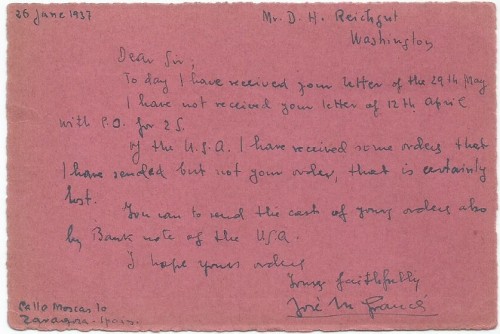 26 June 1937
Mr. D. H. Reichgut
Washington
Dear Sir,
To day I have received your letter of the 29th May
I have not received your letter of 12th April
with P.O. for 2S.
Of the U.S.A. I have received some orders that
I have sended but not your order, that is certainly
lost.
You can to send the cash of your orders also
by Bank note of the USA.
I hope yours orders
Yours faithfully
José M
Zaragoza - Spain